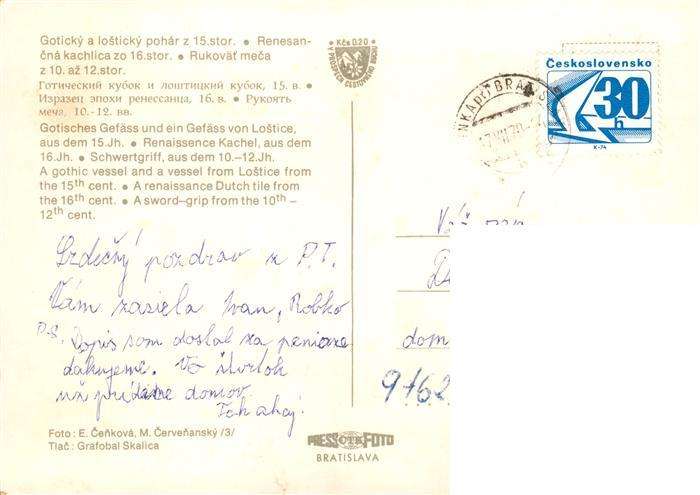 Gotický a loštický pohár z 15.stor. • Renesan-
čná kachlica zo 16.stor. • Rukoväť meča
z 10. až 12.stor.
Готический кубок и лоштицкий кубок, 15. в. •
Изразец эпохи ренессанца, 16. в. • Рукоять
меча, 10.-12. вв.
Gotisches Gefäss und ein Gefäss von Loštice,
aus dem 15.Jh. • Renaissence Kachel, aus dem
16.Jh. • Schwertgriff, aus dem 10.–12.Jh.
A gothic vessel and a vessel from Loštice from
the 15th cent. • A renaissance Dutch tile from
the 16th cent. • A sword–grip from the 10th –
12th cent.
Srdečný pozdrav z P.T.
Vám zasiela Ivan, Robko
P.S. Dopis som dostal za peniaze
ďakujeme. Vo štvrtok
už prídeme domov.
Tak ahoj.
Foto : E. Čeňková, M. Červeňanský /3/
Tlač : Grafobal Skalica
PRESSČTKFOTO
BRATISLAVA
Kčs 0,20
Československo
30
h
X-74
Váž. pán
dom
9162